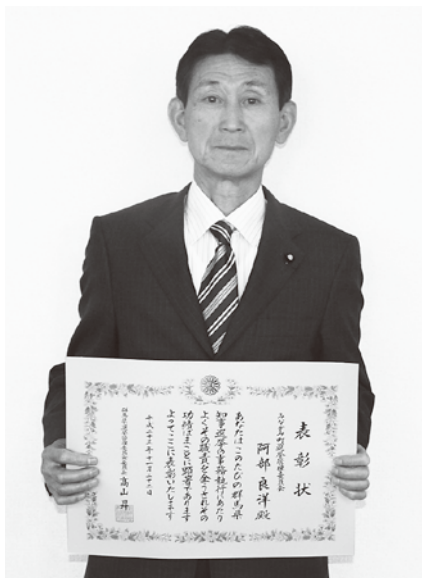 表彰状
みなかみ町選挙管理委員会
阿部良洋殿
あなたはこのたびの群馬県
知事選挙の事務執行にあたり
よくその職責を全うされその
功績はまことに顕著であります
よってここに表彰いたします
平成二十三年十一月二十二日
群馬県選挙管理委員会委員長 高山昇